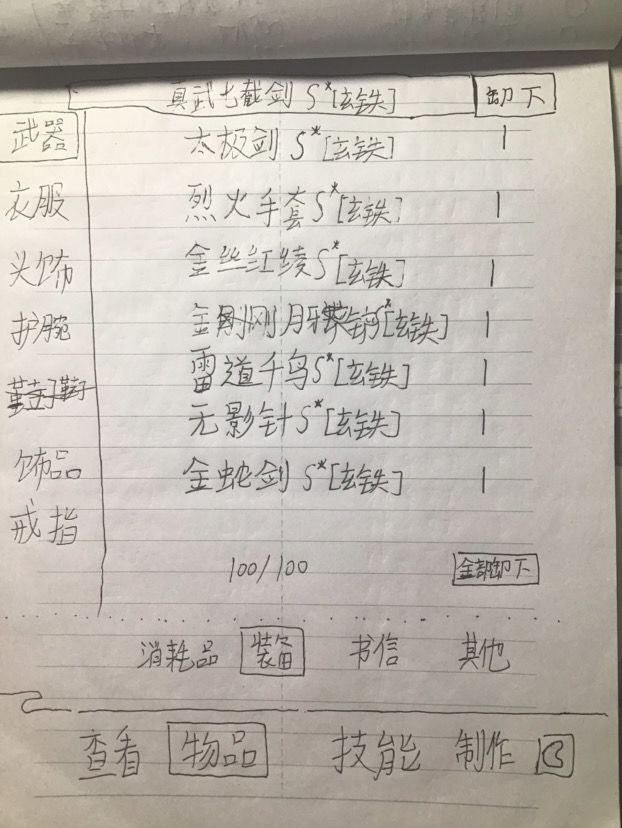 真武七截剑 S*[玄铁] 卸下
武器 太极剑 S*[玄铁] 1
衣服 烈火手套S*[玄铁] 1
头饰 金丝红绫S*[玄铁] 1
护腕 金刚月牙 S*[玄铁] 1
雷道千鸟S*[玄铁] 1
无影针S*[玄铁] 1
饰品 金蛇剑 S*[玄铁] 1
戒指
100/100 全部卸下
消耗品 装备 书信 其他
查看 物品 技能 制作